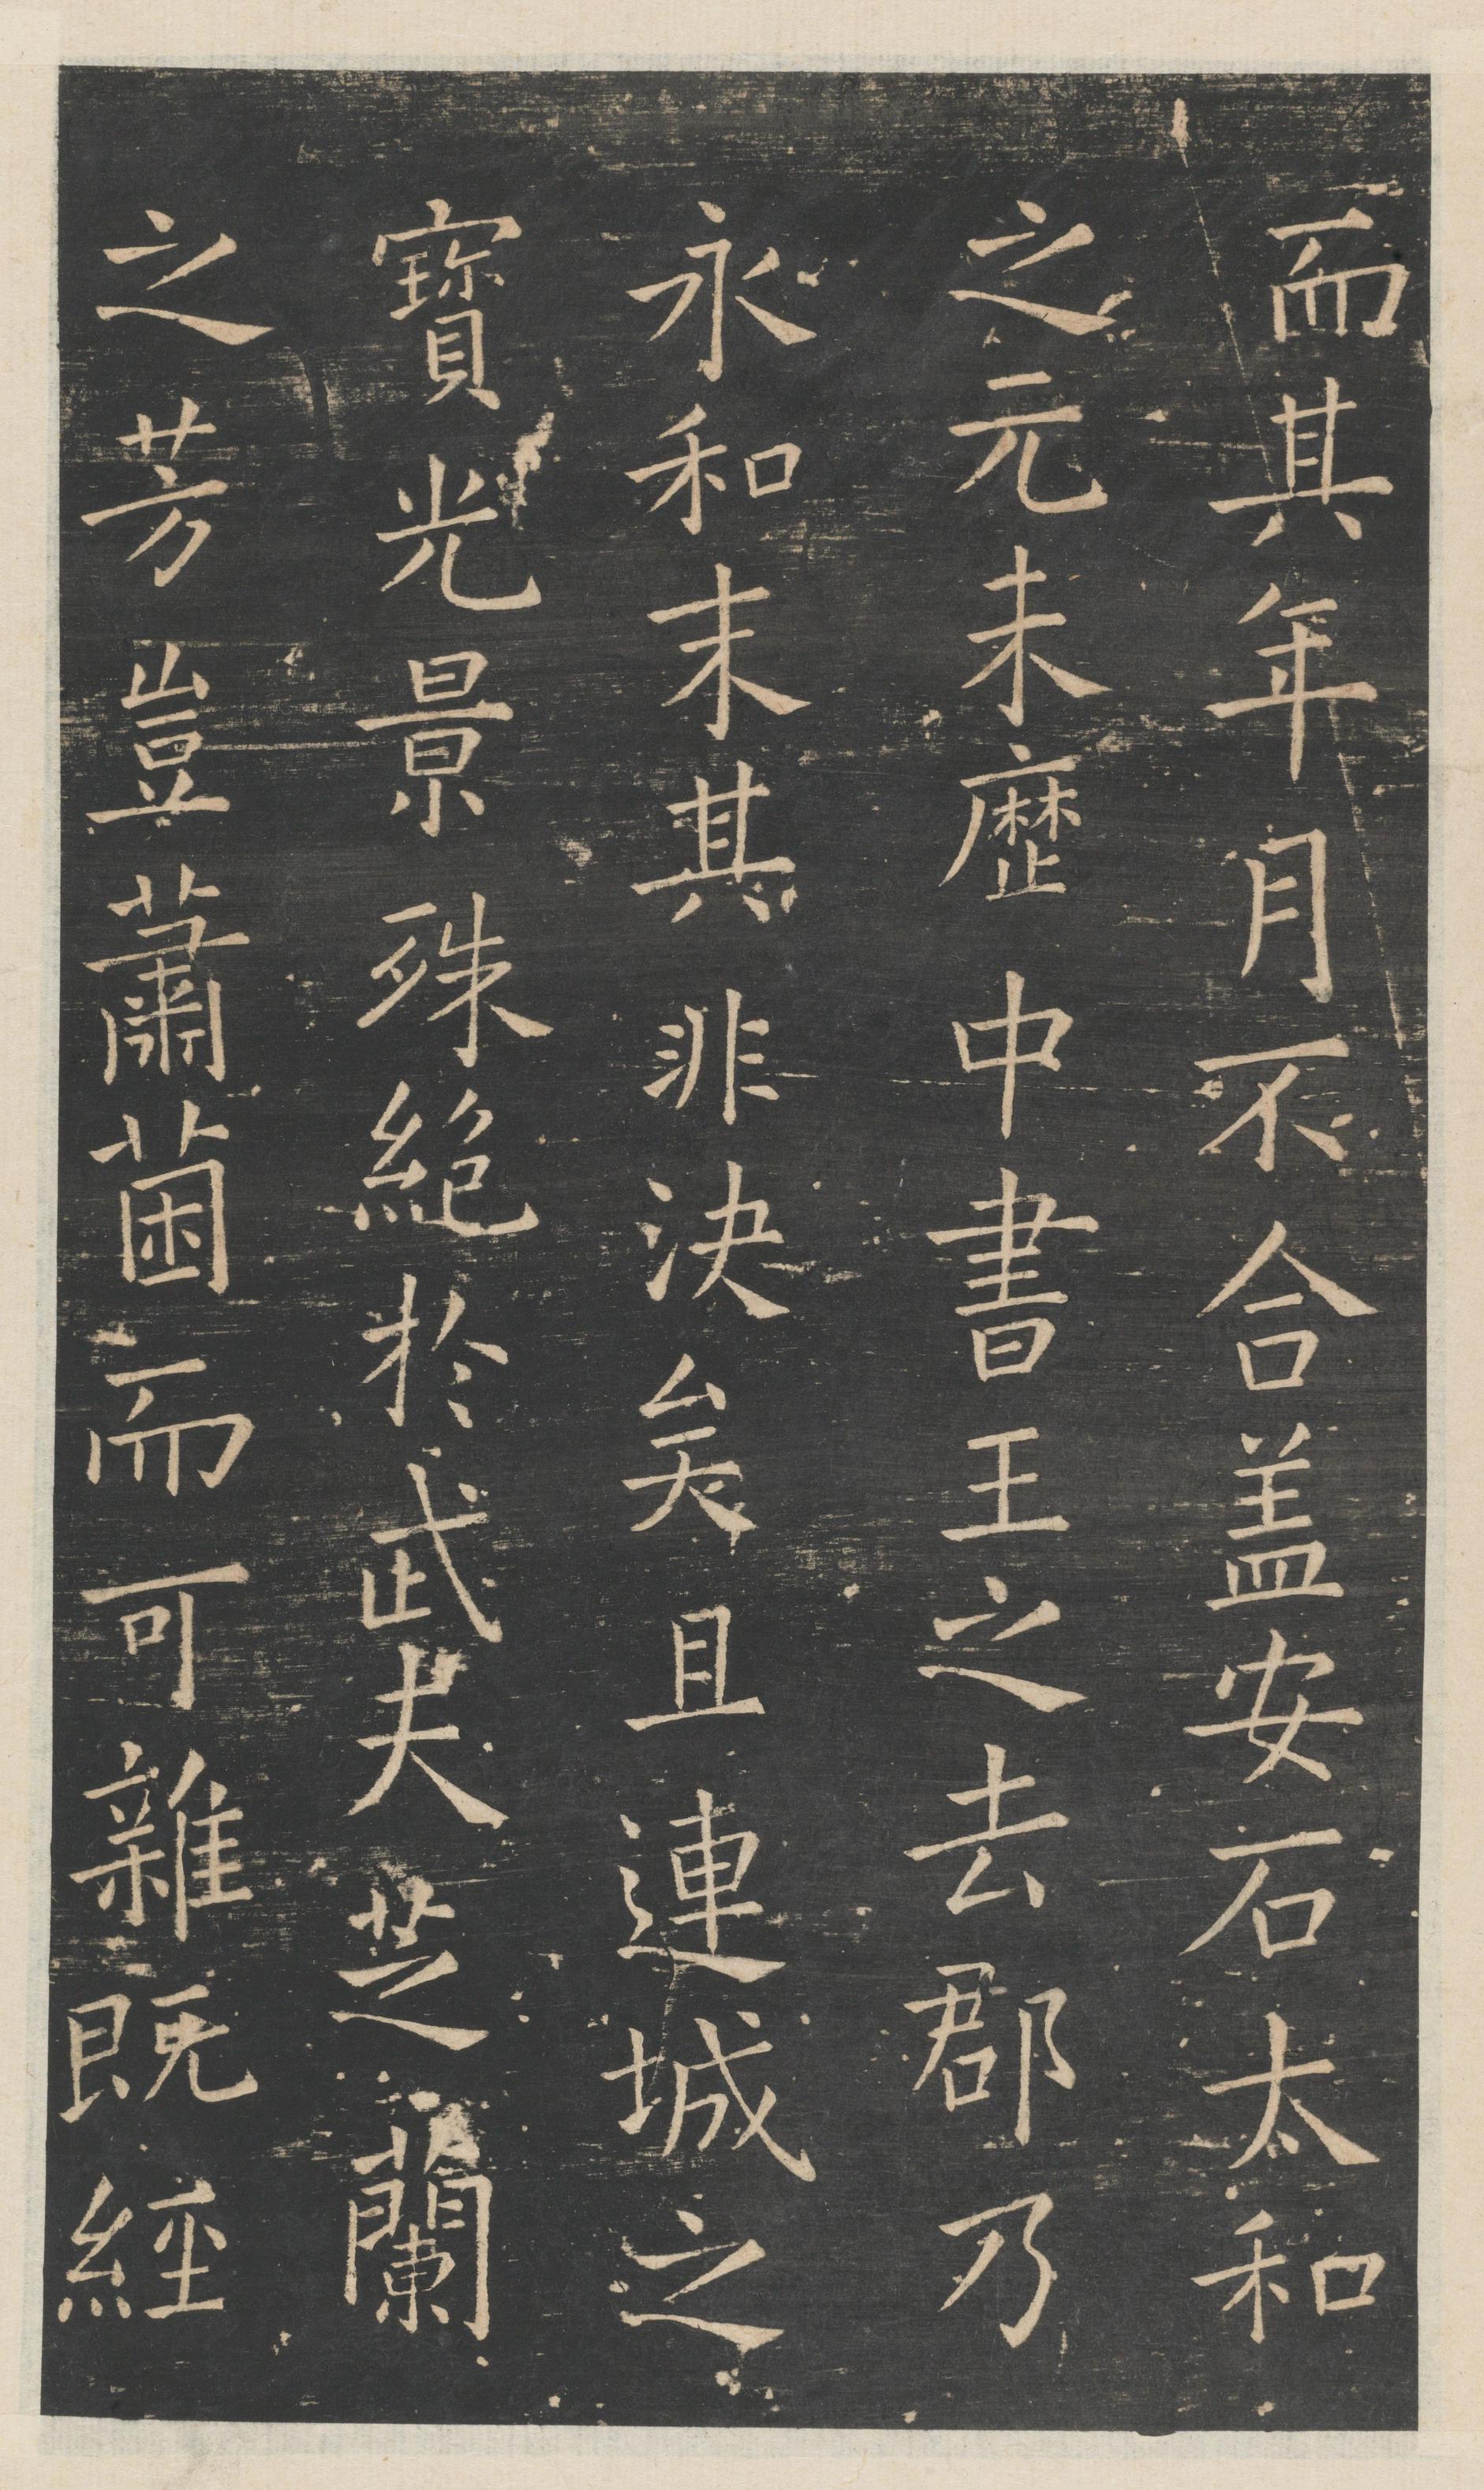 而其年月不合盖安石太和
之元未歷中書王之去郡乃
永和末其非决矣且連城之
寶光景殊絕於武夫芝蘭
之芳豈蕭茵而可雜既經